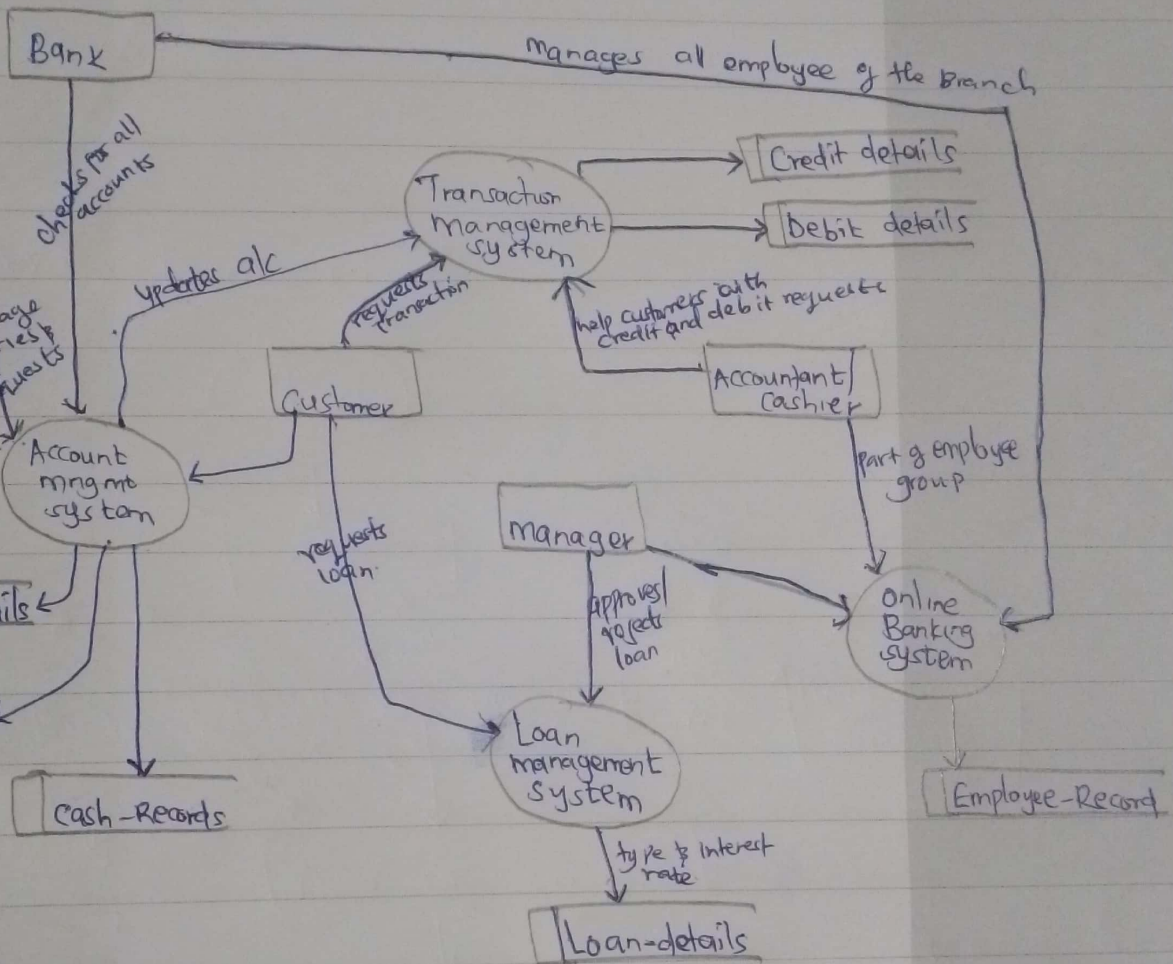 Bank
Manages all employee of the Branch
checks for all
accounts
Credit details
Debit details
Transaction
management
system
updates a/c
requests
transaction
help customers with
credit and debit requests
Customer
Accountant/
Cashier
Account
mngmt
system
part of employee
group
manager
requests
loan
approves/
rejects
loan
online
Banking
system
Loan
management
system
Cash-Records
Employee-Record
type & interest
rate
Loan-details